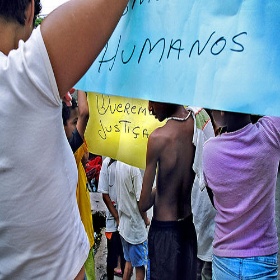 HUMANOS
QUEREMO
JUSTIÇA